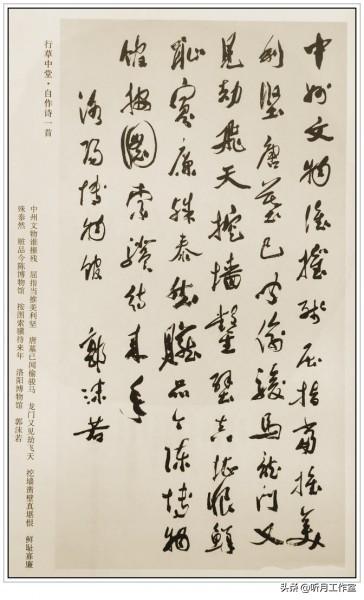 中州文物谁摧残屈指当推美
利坚唐墓已闻偷骏马龙门又
见劫飞天挖墙凿壁真堪恨鲜
耻寡廉殊泰然赃品今陈博物
馆按图索骥待来年
洛阳博物馆 郭沫若
行草中堂·自作诗一首
中州文物谁摧残 屈指当推美利坚 唐墓已闻偷骏马 龙门又见劫飞天 挖墙凿壁真堪恨 鲜耻寡廉
殊泰然 赃品今陈博物馆 按图索骥待来年 洛阳博物馆 郭沫若
头条 @听月工作室